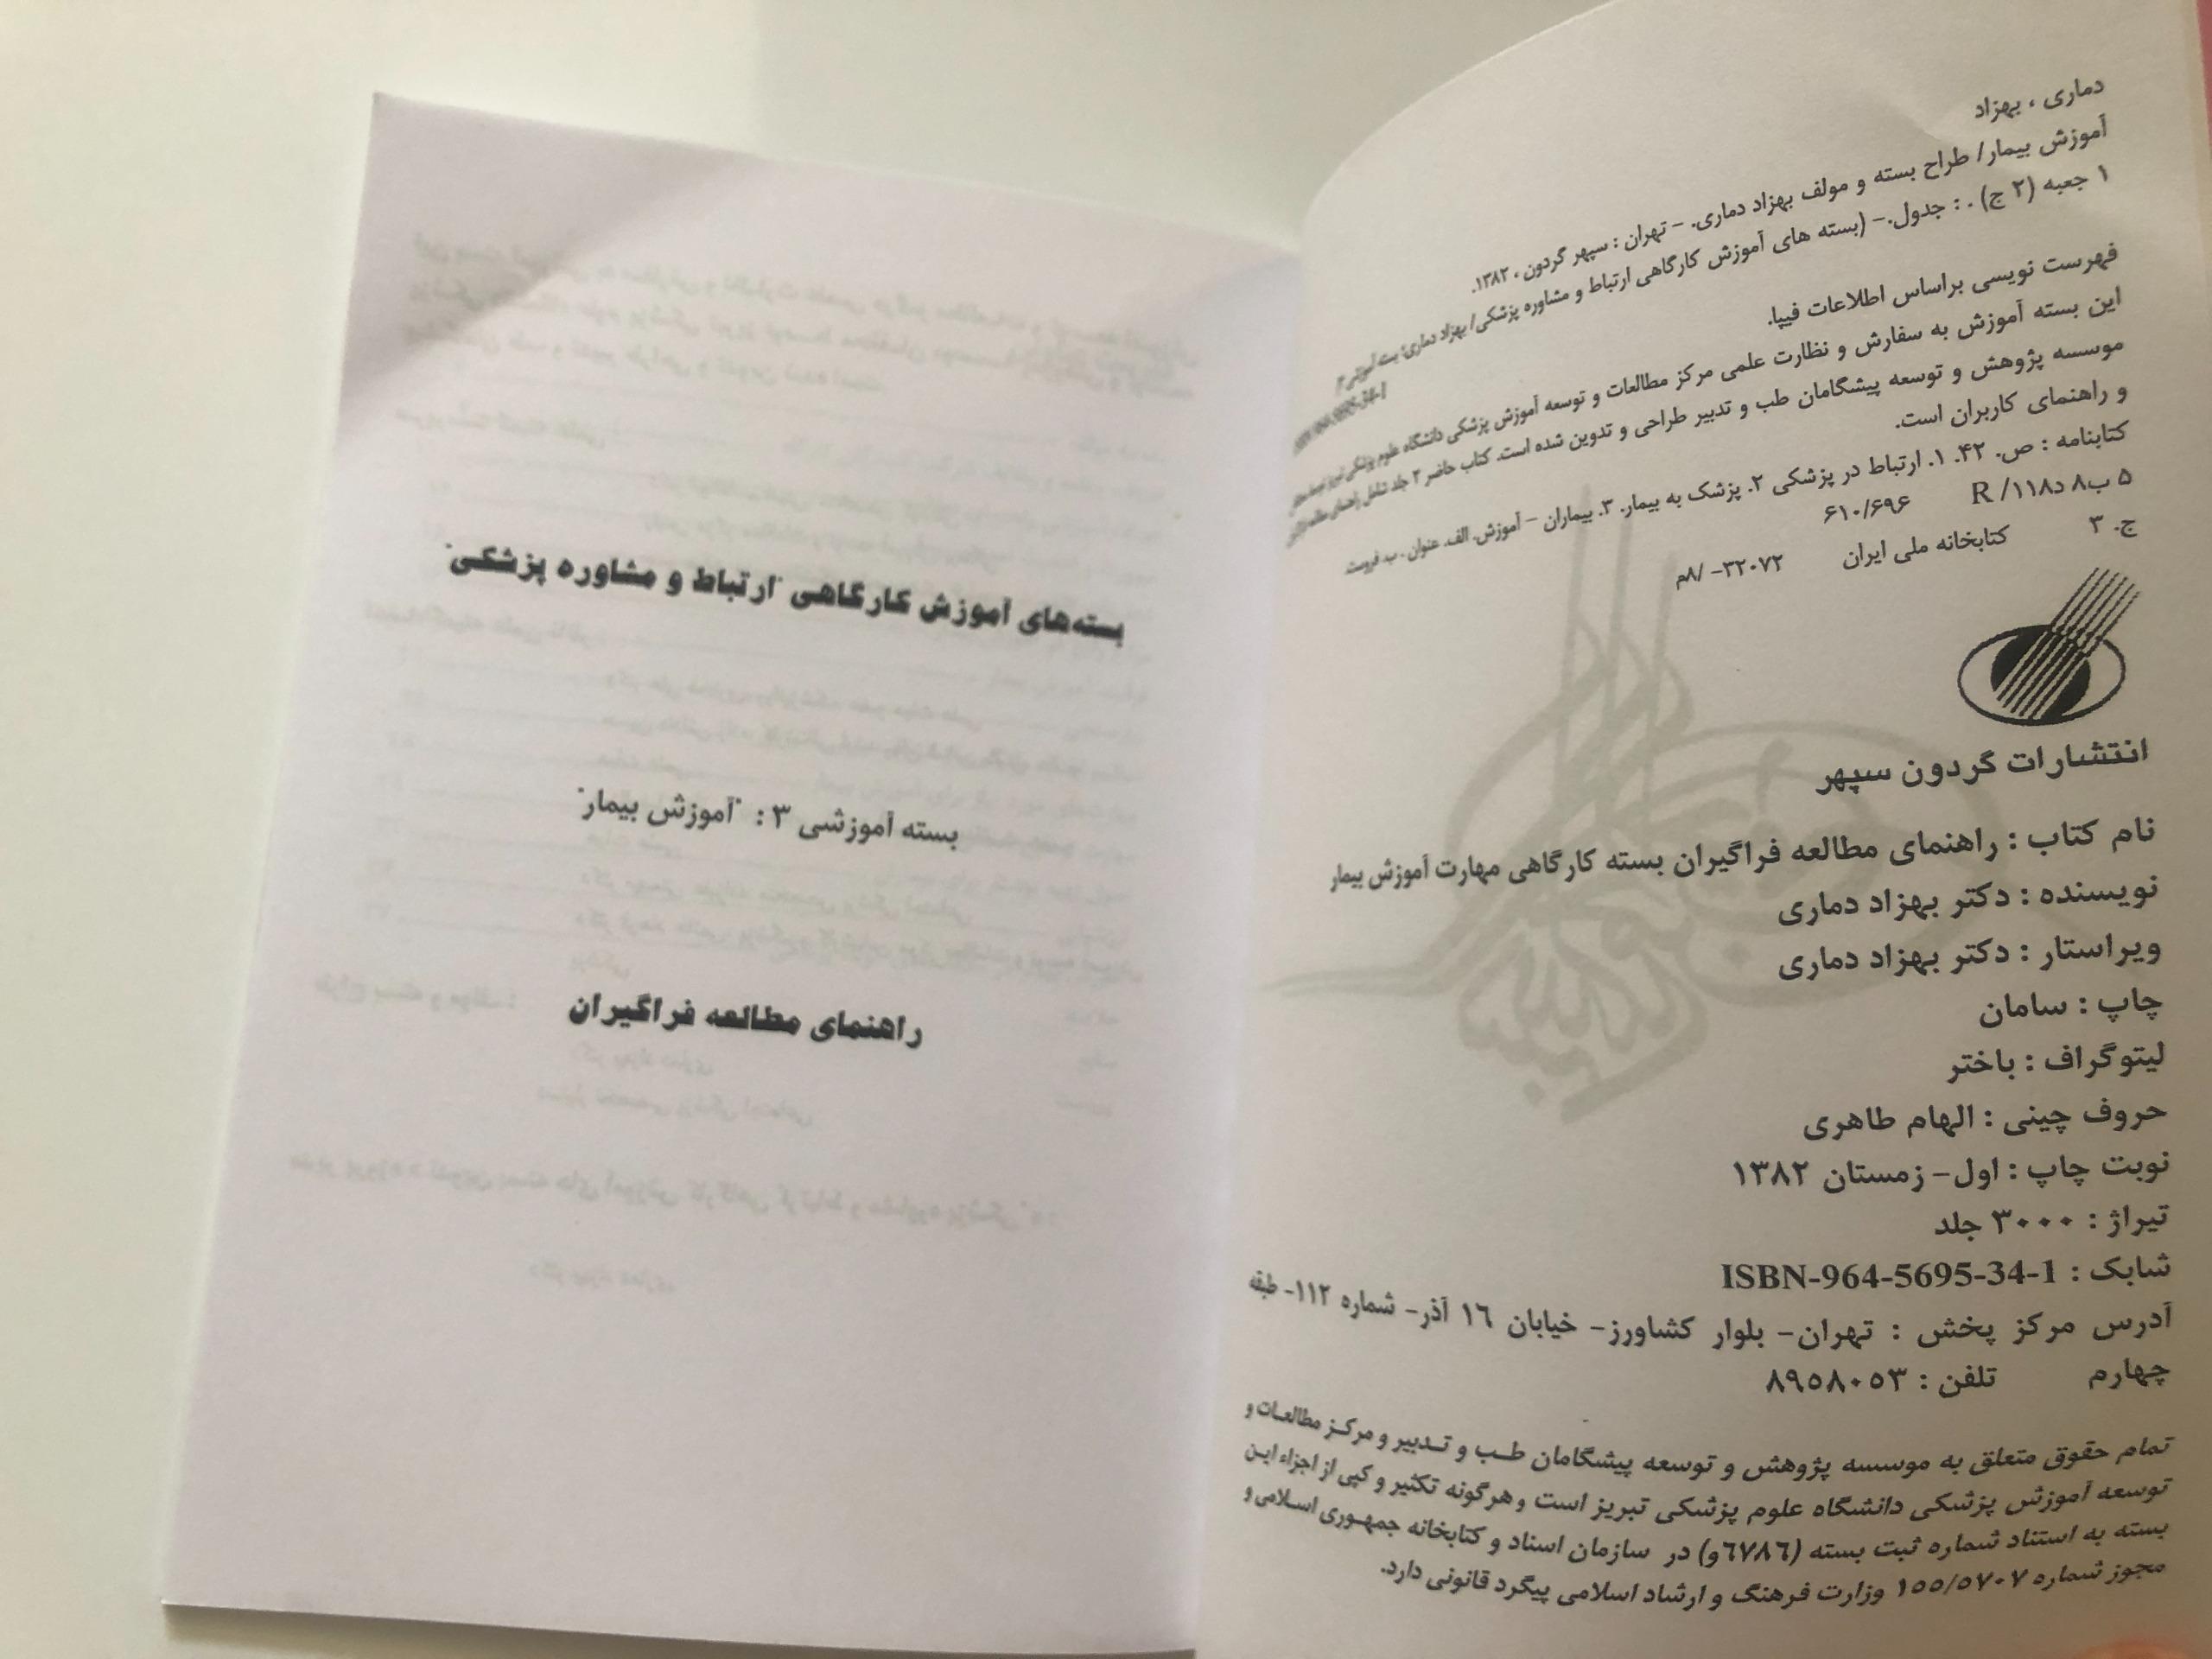 دماری ، بهزاد
آموزش بیمار/ طراح بسته و مولف بهزاد دماری. – تهران : سپهر گردون ، ۱۳۸۲.
۱ جعبه (۲ ج) . : جدول.– (بسته های آموزش کارگاهی ارتباط و مشاوره پزشکی/ بهزاد دماری؛ بسته آموزشی ۳
فهرست نویسی براساس اطلاعات فیپا.
این بسته آموزش به سفارش و نظارت علمی مرکز مطالعات و توسعه آموزش پزشکی دانشگاه علوم پزشکی تبریز توسط
موسسه پژوهش و توسعه پیشگامان طب و تدبیر طراحی و تدوین شده است. کتاب حاضر ۲ جلد شامل راهنمای مطالعه فراگیران
و راهنمای کاربران است.
کتابنامه : ص. ۴۲. ۱. ارتباط در پزشکی ۲. پزشک به بیمار. ۳. بیماران – آموزش. الف. عنوان . ب. فروست.
۵ ب۸ د۱۱۸/ R ۶۱۰/۶۹۶
ج. ۳ کتابخانه ملی ایران ۳۲۰۷۲– /۸م
انتشارات گردون سپهر
نام کتاب : راهنمای مطالعه فراگیران بسته کارگاهی مهارت آموزش بیمار
نویسنده : دکتر بهزاد دماری
ویراستار : دکتر بهزاد دماری
چاپ : سامان
لیتوگراف : باختر
حروف چینی : الهام طاهری
نوبت چاپ : اول– زمستان ۱۳۸۲
تیراژ : ۳۰۰۰ جلد
شابک : ISBN-964-5695-34-1
آدرس مرکز پخش : تهران– بلوار کشاورز– خیابان ۱۶ آذر– شماره ۱۱۲– طبقه
چهارم تلفن : ۸۹۵۸۰۵۳
تمام حقوق متعلق به موسسه پژوهش و توسعه پیشگامان طب و تدبیر و مرکز مطالعات و
توسعه آموزش پزشکی دانشگاه علوم پزشکی تبریز است و هرگونه تکثیر و کپی از اجزاء این
بسته به استناد شماره ثبت بسته (۶۷۸۶و) در سازمان اسناد و کتابخانه جمهوری اسلامی و
مجوز شماره ۱۵۵/۵۷۰۷ وزارت فرهنگ و ارشاد اسلامی پیگرد قانونی دارد.
بسته‌های آموزش کارگاهی "ارتباط و مشاوره پزشکی"
بسته آموزشی ۳ : "آموزش بیمار"
راهنمای مطالعه فراگیران